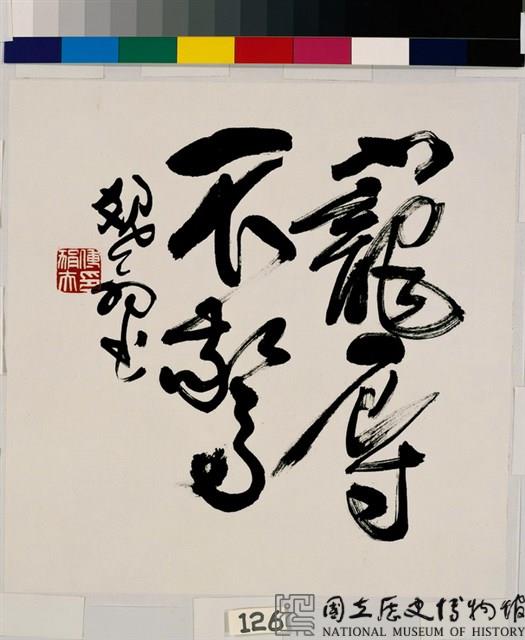 寵辱
不驚
翁書
126
國立歷史博物館
NATIONAL MUSEUM OF HISTORY